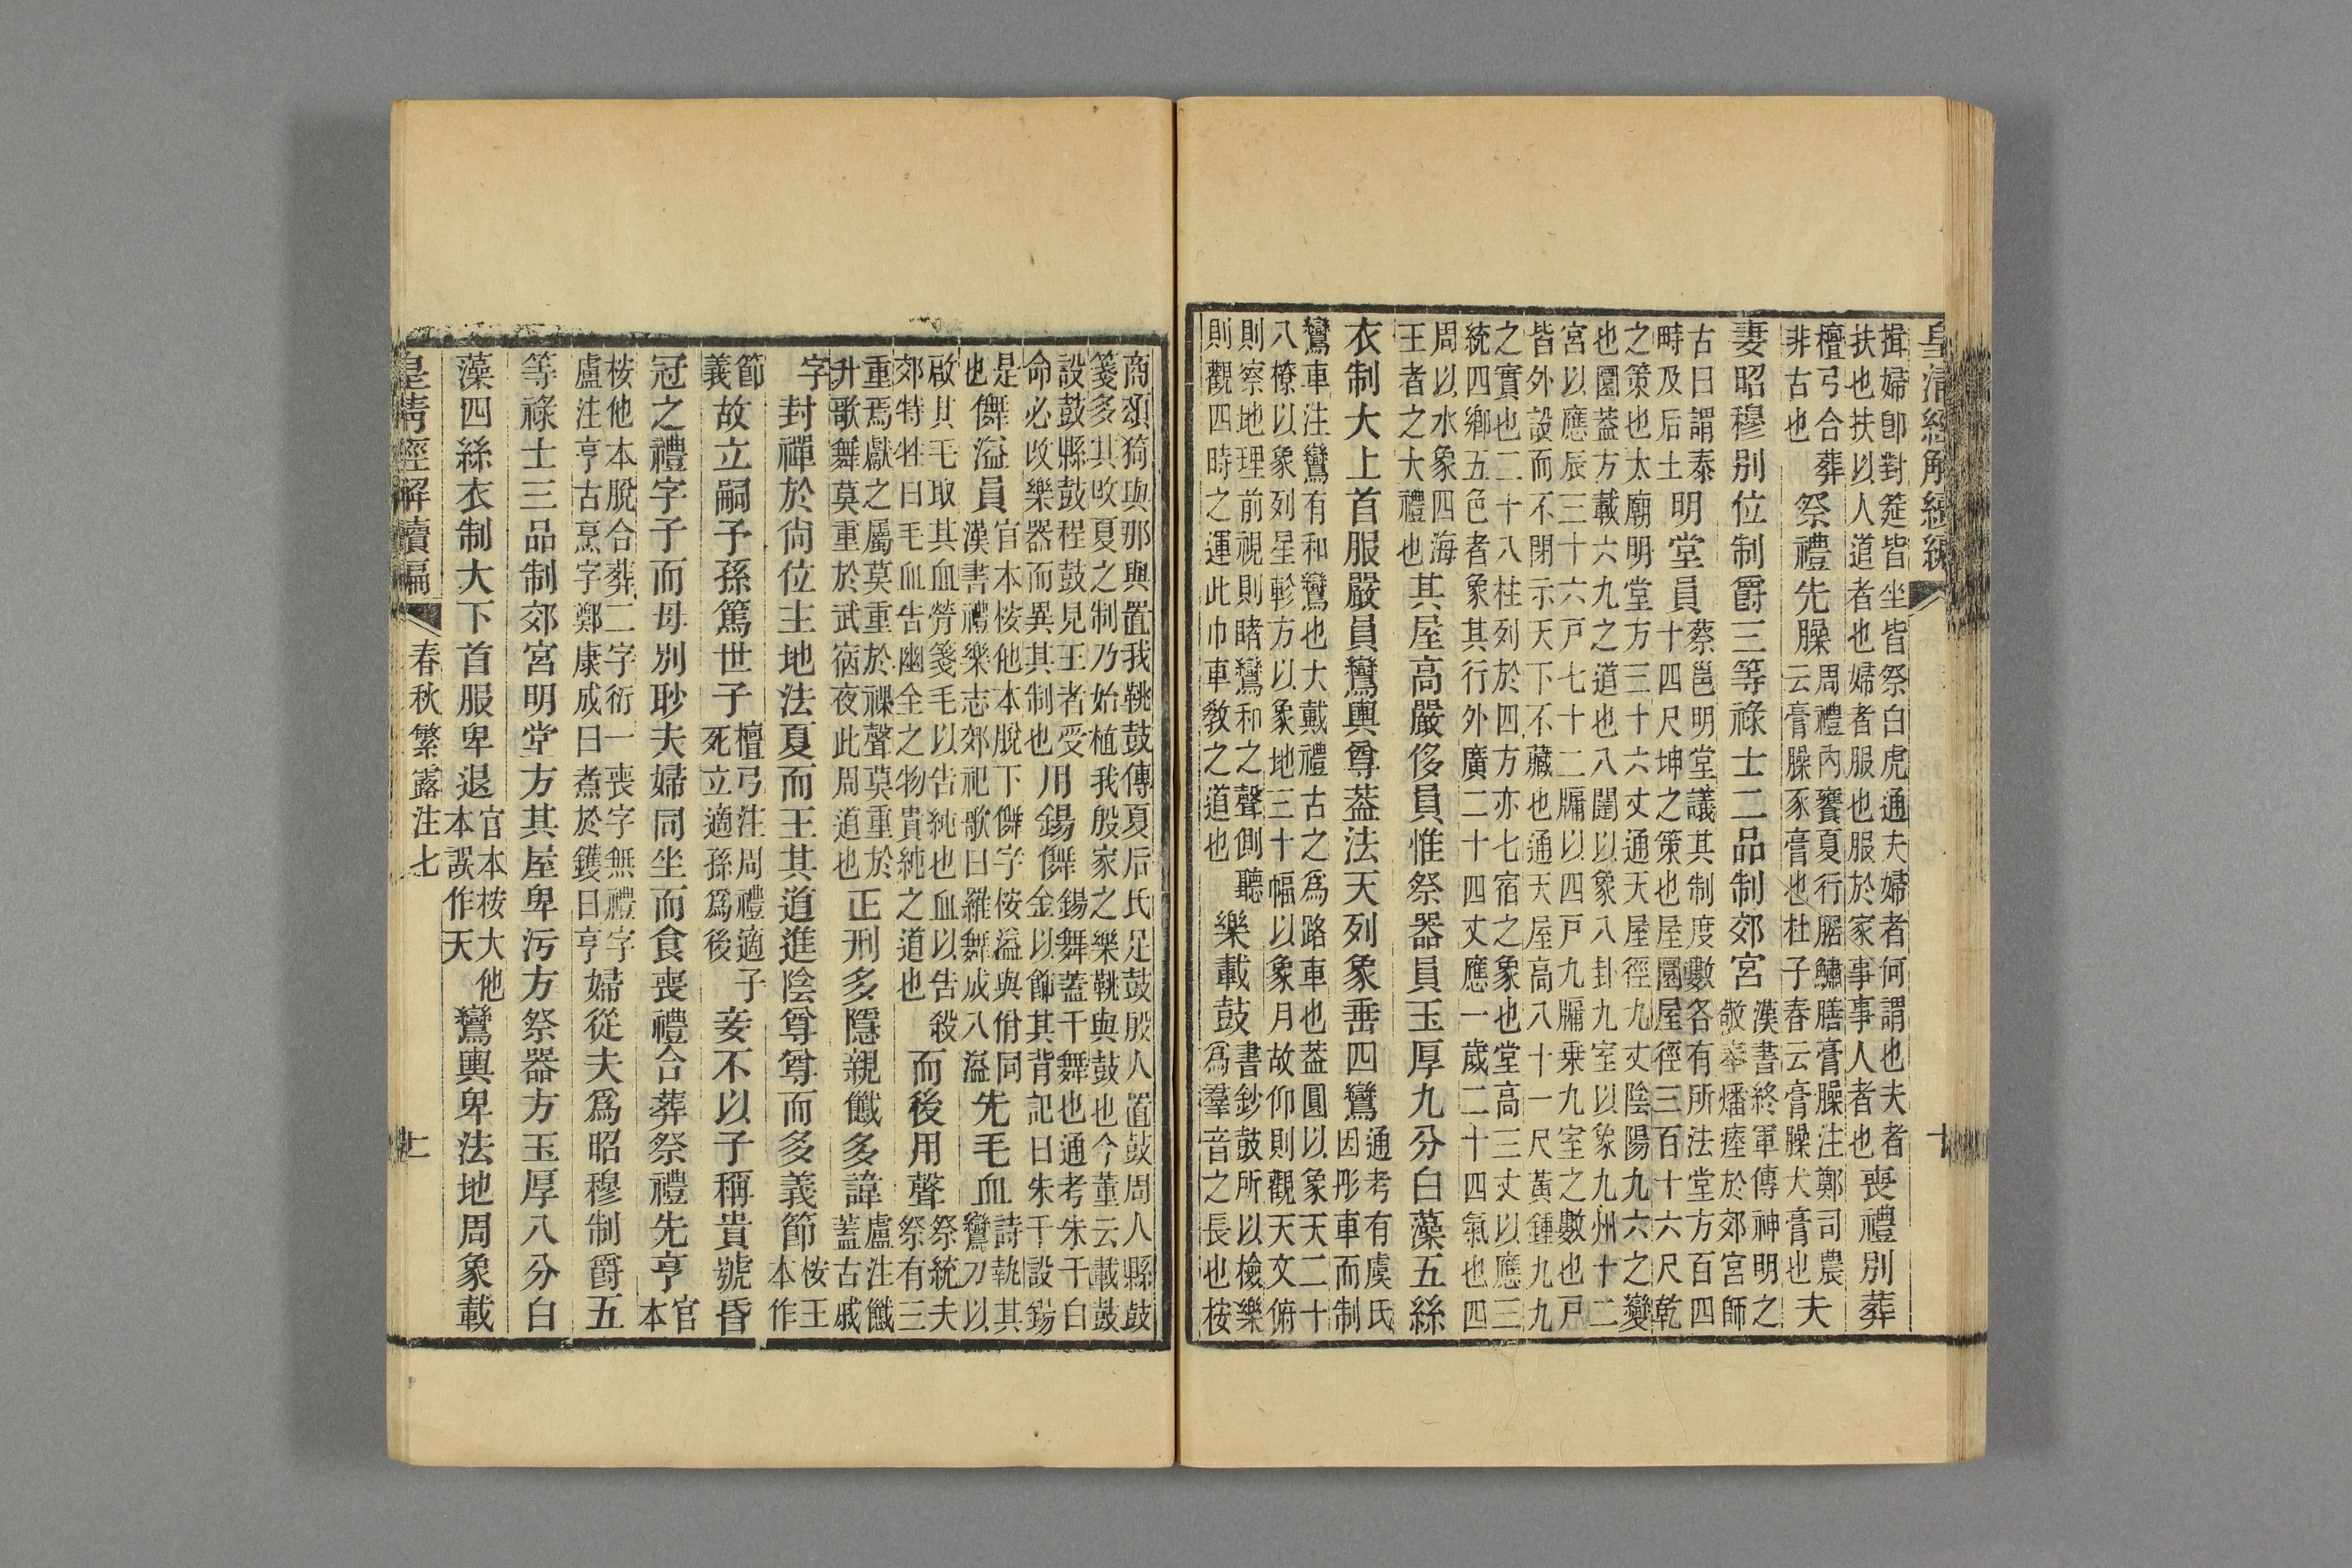 皇清經解續編
揖婦卽對筵皆坐皆祭白虎通夫婦者何謂也夫者
扶也扶以人道者也婦者服也服於家事事人者也
喪禮別葬
檀弓合葬
非古也
祭禮先臊
周禮內饔夏行腒鱐膳膏臊注鄭司農
云膏臊豕膏也杜子春云膏臊犬膏也
夫
妻昭穆别位制爵三等祿士二品制郊宮
漢書終軍傳神明之
敬奉燔瘞於郊宮師
古曰謂泰
畤及后土
明堂員
蔡邕明堂議其制度數各有所法堂方百四
十四尺坤之策也屋圜屋徑三百十六尺乾
之策也太廟明堂方三十六丈通天屋徑九丈陰陽九六之變
也圜葢方載六九之道也八闥以象八卦九室以象九州十二
宮以應辰三十六戸七十二牖以四戸九牖乗九室之數也戸
皆外設而不閉示天下不藏也通天屋高八十一尺黃鍾九九
之實也二十八柱列於四方亦七宿之象也堂高三丈以應三
統四鄉五色者象其行外廣二十四丈應一歲二十四氣也四
周以水象四海
王者之大禮也
其屋高嚴侈員惟祭器員玉厚九分白藻五絲
衣制大上首服嚴員鸞輿尊葢法天列象垂四鸞
通考有虞氏
因彤車而制
鸞車注鸞有和鸞也大戴禮古之爲路車也葢圓以象天二十
八橑以象列星軫方以象地三十幅以象月故仰則觀天文俯
則察地理前視則睹鸞和之聲側聽
則觀四時之運此巾車敎之道也
樂載鼓
書鈔鼓所以檢樂
爲羣音之長也桉
商頌猗與那與置我鞉鼓傳夏后氏足鼓殷人置鼓周人縣鼓
箋多其改夏之制乃始植我殷家之樂鞉與鼓也今董云載鼓
設鼓縣鼓程鼓見王者受
命必改樂器而異其制也
用鍚儛
鍚舞葢干舞也通考朱干白
金以飾其背記曰朱干設鍚
是
也
儛溢員
官本桉他本脫下儛字侒溢與佾同
漢書禮樂志郊祀歌曰羅舞成八溢
先毛血
詩執其
鸞刀以
啟其毛取其血膋箋毛以告純也血以告殺
郊特牲曰毛血告幽全之物貴純之道也
而後用聲
祭統夫
祭有三
重焉獻之屬莫重於祼聲莫重於
升歌舞莫重於武宿夜此周道也
正刑多隱親㦰多諱
盧注㦰
蓋古戚
字封禪於尙位主地法夏而王其道進陰尊尊而多義節
桉王
本作
節
義
故立嗣予孫篤世子
檀弓注周禮適子
死立適孫爲後
妾不以子稱貴號昏
冠之禮字子而母別眇夫婦同坐而食喪禮合葬祭禮先亨
官
本
桉他本脫合葬二字衍一喪字無禮字
盧注亨古烹字鄭康成曰煮於鑊曰亨
婦從夫爲昭穆制爵五
等祿士三品制郊宮明堂方其屋卑污方祭器方玉厚八分白
藻四絲衣制大下首服卑退
官本桉大他
本誤作天
鸞輿卑法地周象載
皇清經解續編
春秋繁露注七